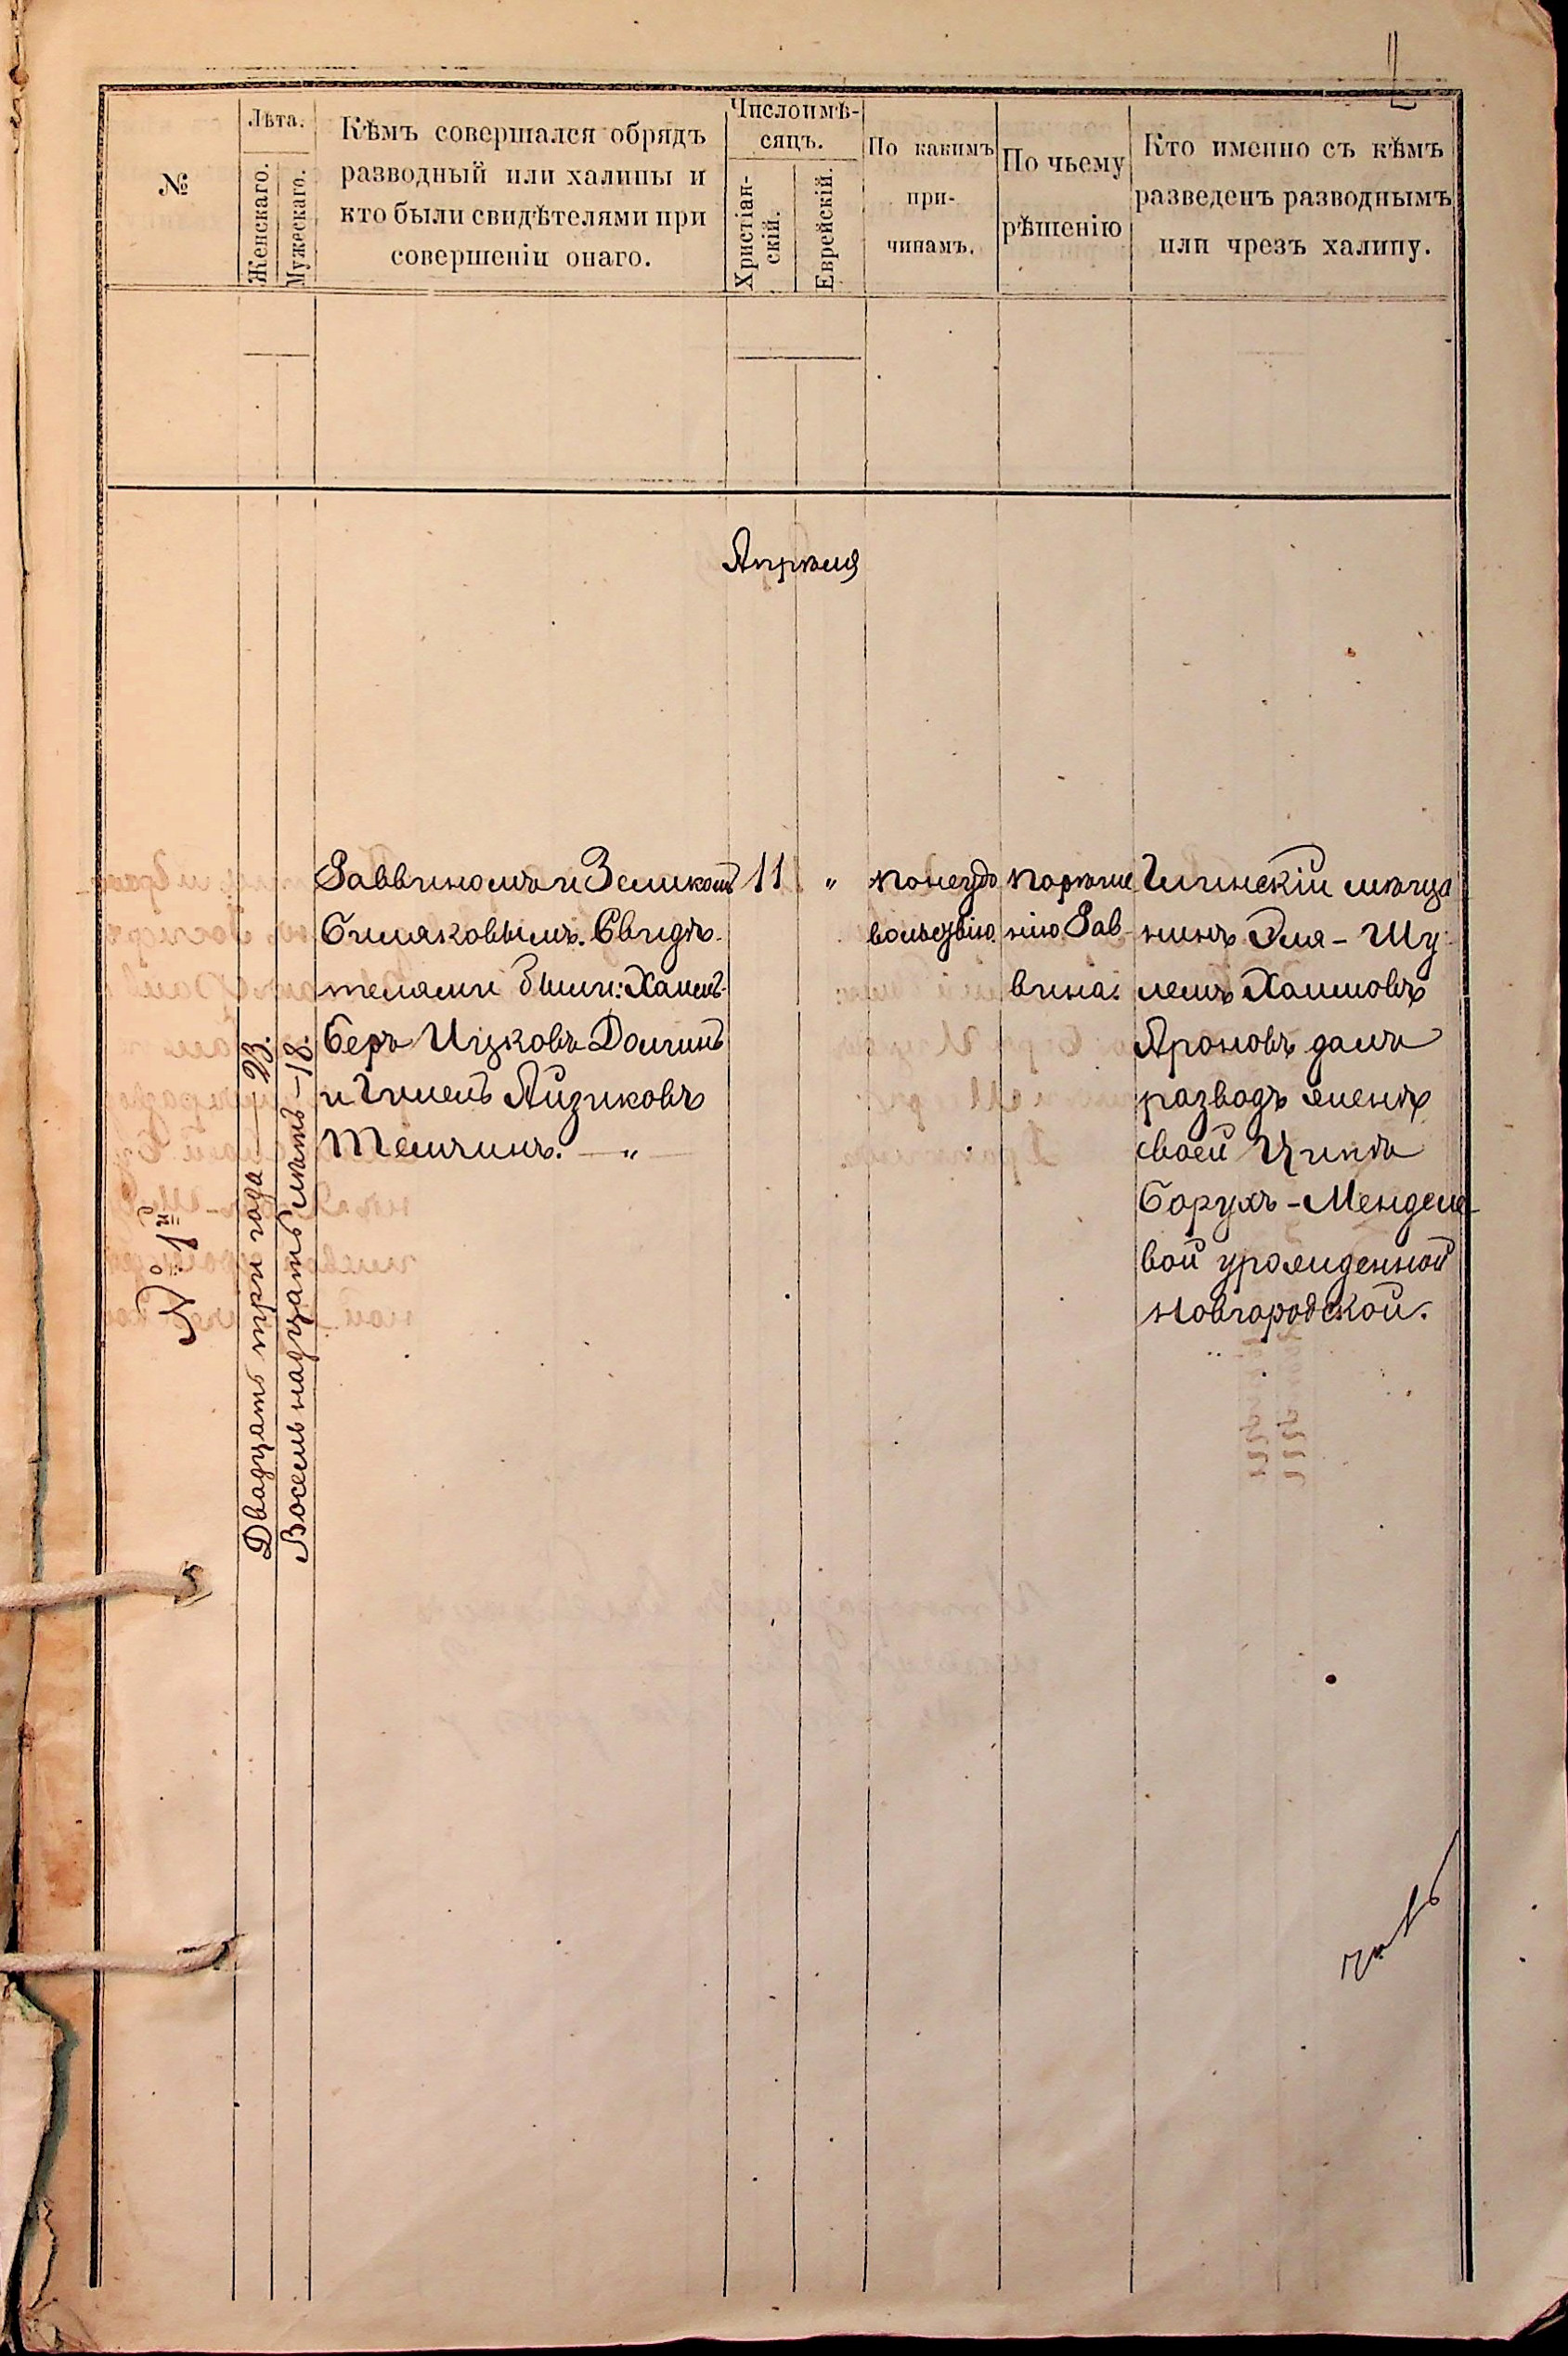 №
Лѣта.
Женскаго.
Мужескаго.
Кѣмъ совершался обрядъ
разводный или халицы и
кто были свидѣтелями при
совершеніи онаго.
Числоимѣ-
сяцъ.
Христіан-
скій.
Еврейскій.
По какимъ
при-
чинамъ.
По чьему
рѣшенію
Кто именно съ кѣмъ
разведенъ разводнымъ
или чрезъ халицу.
Апрѣля
№ 1й
Двадцать три года — 23.
Восемь надцать лѣтъ — 18.
Раввиномъ Зеликомъ
Симяковымъ. Свидѣ-
телями были: Хаимъ-
Беръ Ицковъ Долгинъ
и Гилель Айзиковъ
Темчинъ. — „ —
11
„
по неудо
вольствію
по рѣше
нію Рав-
вина.
мѣща
нинъ Эля - Шу-
лемъ Хаимовъ
Ароновъ далъ
разводъ женѣ
своей Ципѣ
Борухъ - Менделе-
вой урожденной
Новгородской.